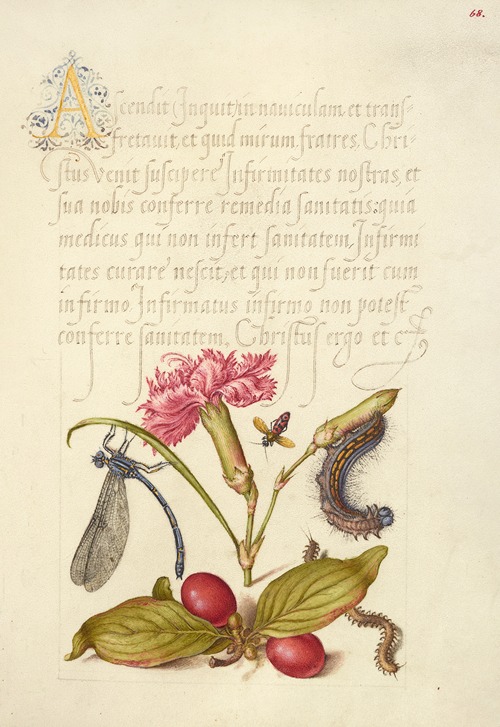 68.
Ascendit Inquit in nauiculam, et trans-
fretauit, et quid mirum fratres, Chri-
stus venit suscipere Infirmitates nostras, et
sua nobis conferre remedia sanitatis: quia
medicus qui non infert sanitatem, Infirmi
tates curare nescit, et qui non fuerit cum
infirmo Infirmatus infirmo non potest
conferre sanitatem, Christus ergo et c